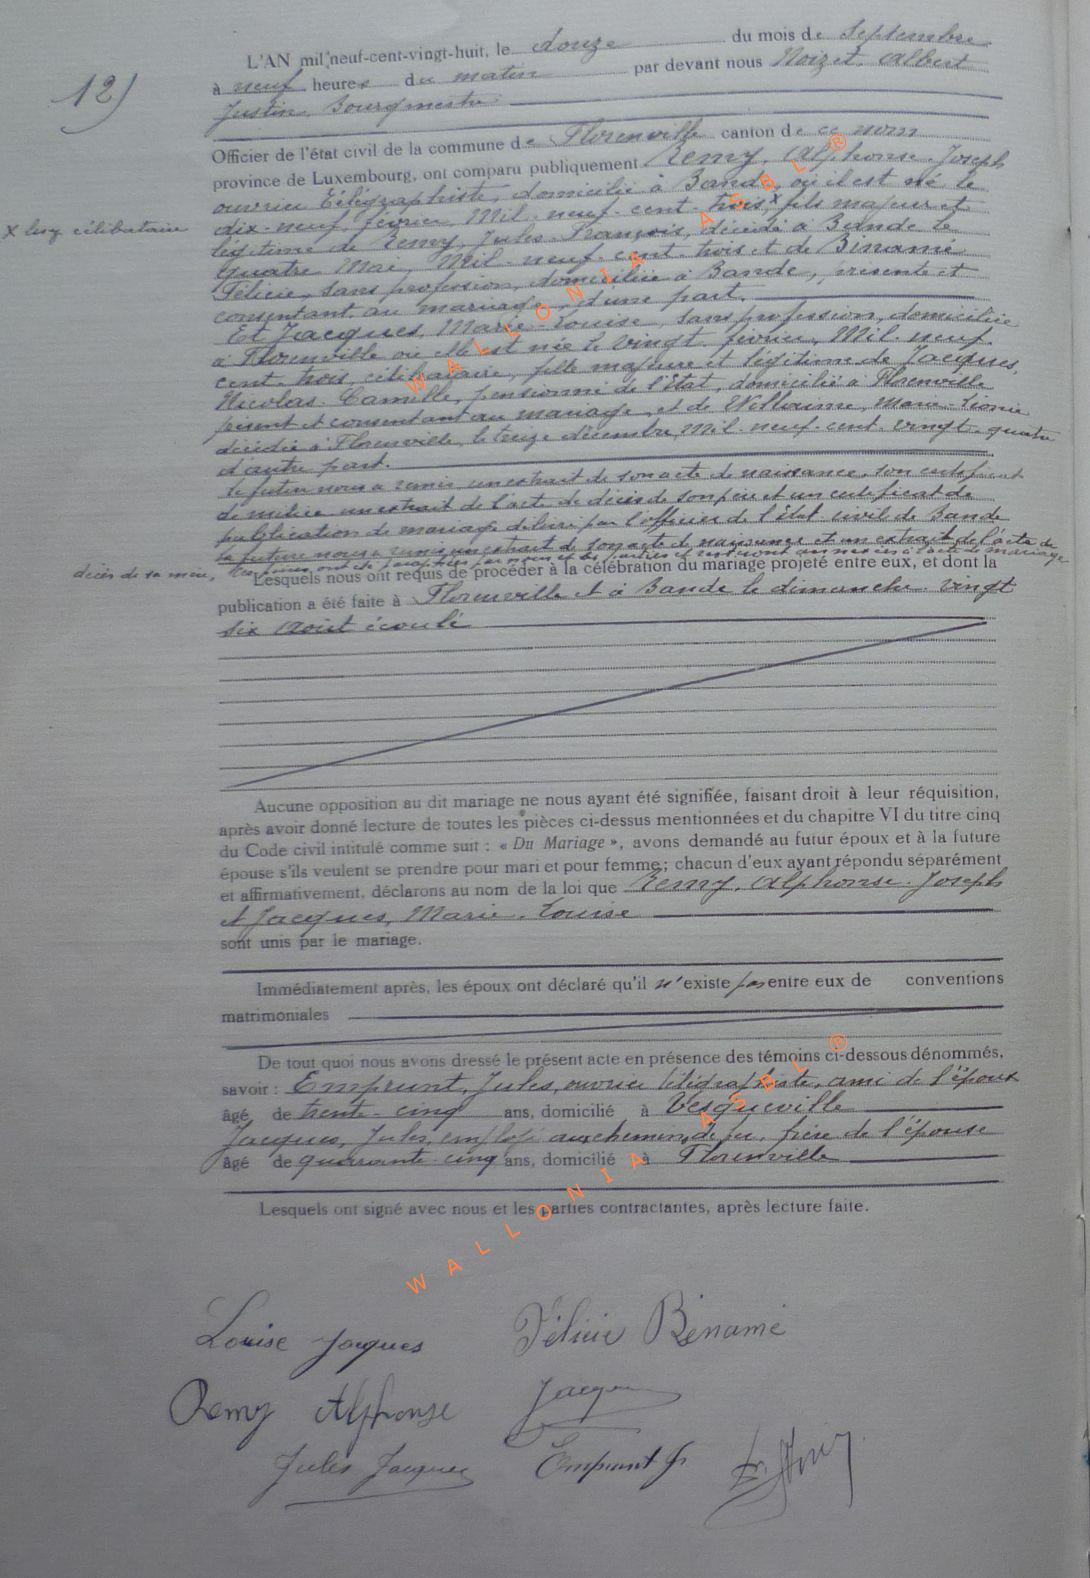 12)
L'AN mil neuf-cent-vingt-huit, le douze du mois de Septembre
à neuf heures du matin par devant nous Noizet, Albert
Justin, Bourgmestre
Officier de l'état civil de la commune de Florenville canton de ce nom
province de Luxembourg, ont comparu publiquement Remy, Alphonse-Joseph
ouvrier télégraphiste, domicilié à Bande, où il est né le
dix-neuf février Mil-neuf-cent-trois, x fils majeur et
x célibataire
légitime de Remy, Jules-François, décédé à Bande le
quatre Mai, Mil-neuf-cent-trois et de Binamé
Félicie, sans profession, domiciliée à Bande, présente et
consentant au mariage, d'une part.
Et Jacques, Marie-Louise, sans profession, domiciliée
à Florenville où elle est née le vingt février, Mil-neuf-
cent-trois, célibataire, fille majeure et légitime de Jacques,
Nicolas-Camille, pensionné de l'état, domicilié à Florenville
présent et consentant au mariage, et de Willaime, Marie-Léonie
décédée à Florenville, le treize décembre, Mil-neuf-cent-vingt-quatre
d'autre part.
Le futur nous a remis un extrait de son acte de naissance, son certificat
de milice un extrait de l'acte de décès de son père et un certificat de
publication de mariage délivré par l'officier de l'état civil de Bande
la future nous a remis un extrait de son acte de naissance et un extrait de l'acte de
décès de sa mère, Ces pièces ont été paraphées par nous et les parties et resteront annexées à l'acte de mariage
Lesquels nous ont requis de procéder à la célébration du mariage projeté entre eux, et dont la
publication a été faite à Florenville et à Bande le dimanche vingt
six Août écoulé
Aucune opposition au dit mariage ne nous ayant été signifiée, faisant droit à leur réquisition,
après avoir donné lecture de toutes les pièces ci-dessus mentionnées et du chapitre VI du titre cinq
du Code civil intitulé comme suit : « Du Mariage », avons demandé au futur époux et à la future
épouse s'ils veulent se prendre pour mari et pour femme ; chacun d'eux ayant répondu séparément
et affirmativement, déclarons au nom de la loi que Remy, Alphonse-Joseph
et Jacques, Marie-Louise
sont unis par le mariage.
Immédiatement après, les époux ont déclaré qu'il n'existe pas entre eux de conventions
matrimoniales
De tout quoi nous avons dressé le présent acte en présence des témoins ci-dessous dénommés,
savoir : Emprunt, Jules, ouvrier télégraphiste, ami de l'époux
âgé de trente-cinq ans, domicilié à Vesqueville
Jacques, Jules, employé aux chemins de fer, frère de l'épouse
âgé de quarante-cinq ans, domicilié à Florenville
Lesquels ont signé avec nous et les parties contractantes, après lecture faite.
Louise Jacques Félicie Binamé
Remy Alphonse Jacques
Jules Jacques Emprunt J
WALLONIA ASBL ®
WALLONIA ASBL ®